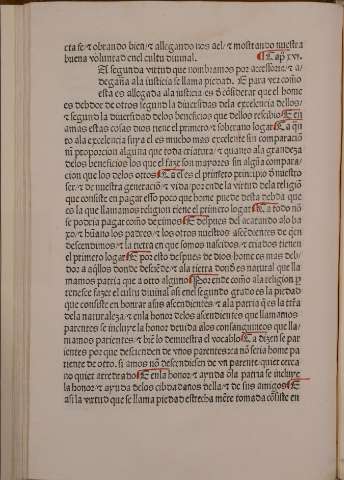 cta se / ⁊ obrando bien / ⁊ allegando nos a el / ⁊ mostrando nuestra
buena voluntad en el cultu diuinal. Cap. xvi.
El segunda virtud que nombramos por accessoria / ⁊ a-
degaña a la justicia se llama piedad. E para ver como
esta es allegada a la justicia es d'cõsiderar que el home
es debdor de otros segund la diuersidas de la excelencia dellos /
⁊ segund la diuersidad delos beneficios que dellos rescibio E en
amas estas cosas dios tiene el primero ⁊ soberano logar Ca q̃n
to ala excelencia suya el es mucho mas excelente sin comparaciõ
nin proporcion alguna que toda criatura / ⁊ quanto ala grandeza
delos beneficios los que el faze son mayores sin algũa compara-
cion que los delos otros Ca el es el primero principio d'nuestro
ser / ⁊ de nuestra generaciõ / ⁊ vida / por ende la virtud dela religiõ
que consiste en pagar esso poco que home puede desta debda que
es la que llamamos religion tiene el primero logar Ca todo nõ
se podria pagar como dezimos E despues del acatando alo ba
xo / ⁊ hũano los padres / ⁊ los otros nuestros ascẽdientes de q̃en
descendimos / ⁊ la tierra en que somos nascidos / ⁊ criados tienen
el primero logar E por esto despues de dios home es mas deb-
dor a aq̃llos donde desciẽde / ⁊ ala tierra dond es natural que lla
mamos patria que a otro alguno Por ende comõ ala religion p
renesce fazer el cultu diuinal asi enel segundo grado es la piedad
que consiste en honrar a sus ascendientes / ⁊ ala patria q̃ es la tr̃a
dela naturaleza / ⁊ enla honor delos ascendientes que llamamos
parentes se incluye la honor deuida alos consanguineos que lla-
mamos parientes / ⁊ biẽ lo demuestra el vocablo Ca dizen se par
ientes por que descienden de vnos parentes: ca nõ seria home pa
riente de otro. si amos nõ descendiesen de vn parente quier cerca
no quier arredrado E enla honor / ⁊ ayuda dla patria se incluye
la honor / ⁊ ayuda delos cibdadanos della / ⁊ de sus amigos E
asi la virtud que se llama piedad estrecha mẽte tomada cõsiste en